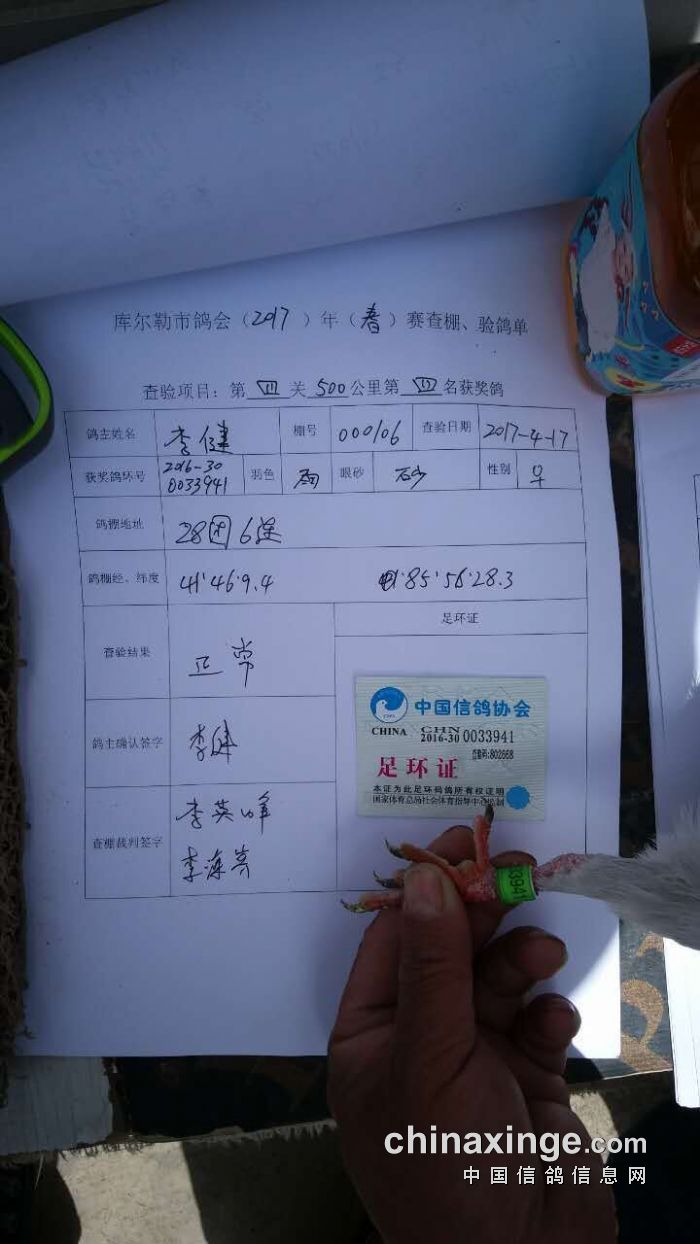 库尔勒市鸽会（2017）年（春）赛查棚、验鸽单
查验项目：第 四 关 500 公里第 四 名获奖鸽
鸽主姓名 李健 棚号 000106 查验日期 2017-4-17
获奖鸽环号 2016-30 0033941 羽色 雨 眼砂 砂 性别 早
鸽棚地址 28团6连
鸽棚经、纬度 41°46'9.4 85°56'28.3
查验结果 正常
足环证
鸽主确认签字 李健
查棚裁判签字 李英峰
李海
中国信鸽协会
CHINA CHN
2016-30 0033941
802668
足环证
本证为此足环码鸽所有权证明
国家体育总局社会体育指导中心监制
3941
chinaxinge.com
中国信鸽信息网